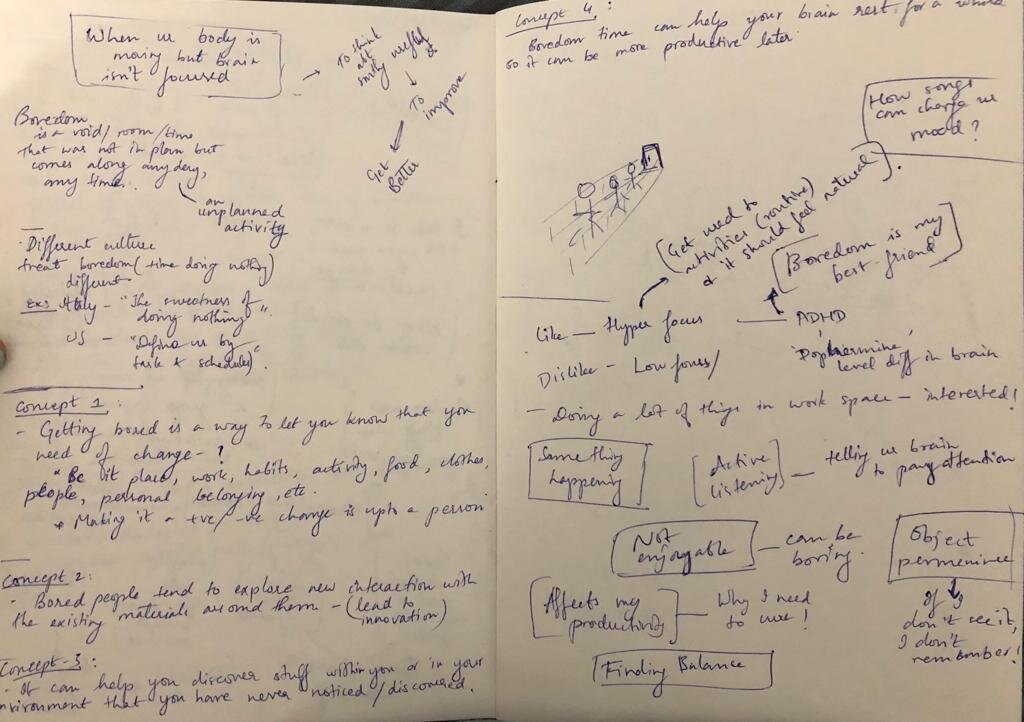 When ur body is
moving but brain
isn't focused
→ To think
abt
smthg useful
↓
To
improve
Get
Better
Boredom
is a void/room/time
that was not in plan but
comes along any day,
any time.
an
unplanned
activity
Different culture
treat boredom (time doing nothing)
different
Exs Italy - "The sweetness of
doing nothing".
US - "Define us by
task & schedules".
Concept 1:
- Getting bored is a way to let you know that you
need of change - ?
* Be it place, work, habits, activity, food, clothes,
people, personal belonging, etc.
* Making it a +ve/-ve change is upto a person
Concept 2:
· Bored people tend to explore new interaction with
the existing materials around them - (lead to
innovation)
Concept-3:
· It can help you discover stuff within you or in your
environment that you have never noticed/discovered.
Concept 4:
Boredom time can help your brain rest for a while
so it can be more productive later.
How songs
can change ur
mood?
(Get used to
activities (routine)
& it should feel natural).
Boredom is my
best-friend
Like — Hyper focus — ADHD
level diff in brain
Dislike - Low focus/
- Doing a lot of things in work space - interested!
Something
happening
Active
listening — telling ur brain
to pay attention
Not
enjoyable — can be
boring.
Object
permeninee
Affects my
productivity — Why I need
to cure!
If I
don't see it,
I don't
remember!
Finding Balance